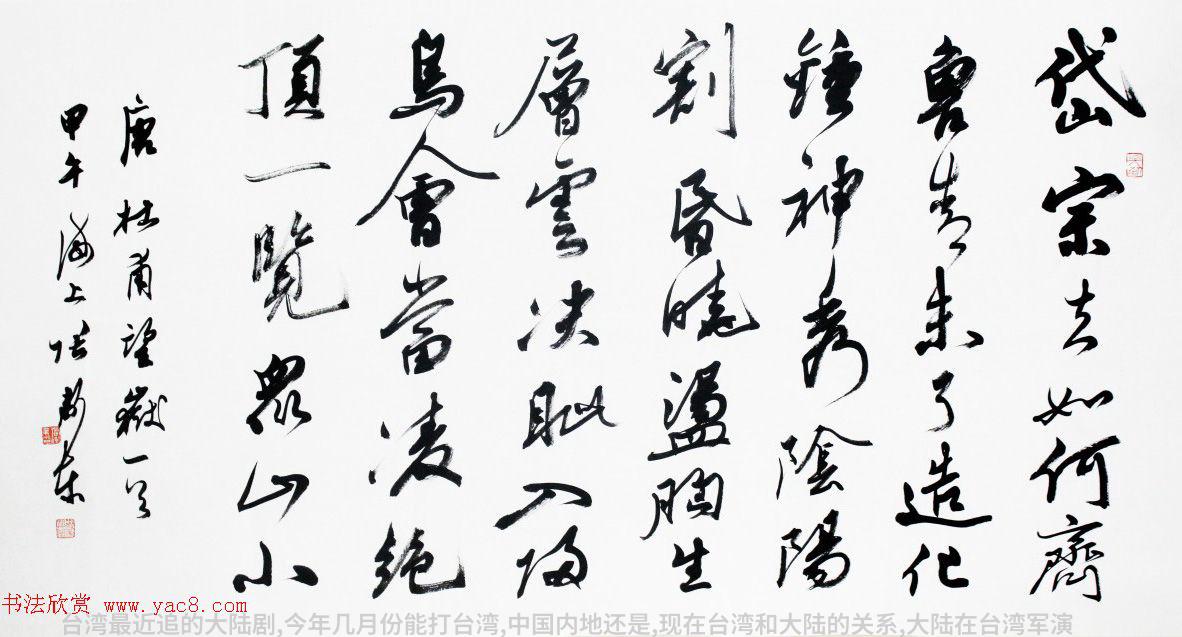 岱宗夫如何齊
魯青未了造化
鍾神秀陰陽
割昏曉盪胸生
層雲決眦入歸
鳥會當凌絕
頂一覽眾山小
唐杜甫望嶽一首
甲午海上張東
书法欣赏 www.yac8.com
台湾最近追的大陆剧,今年几月份能打台湾,中国内地还是,现在台湾和大陆的关系,大陆在台湾军演